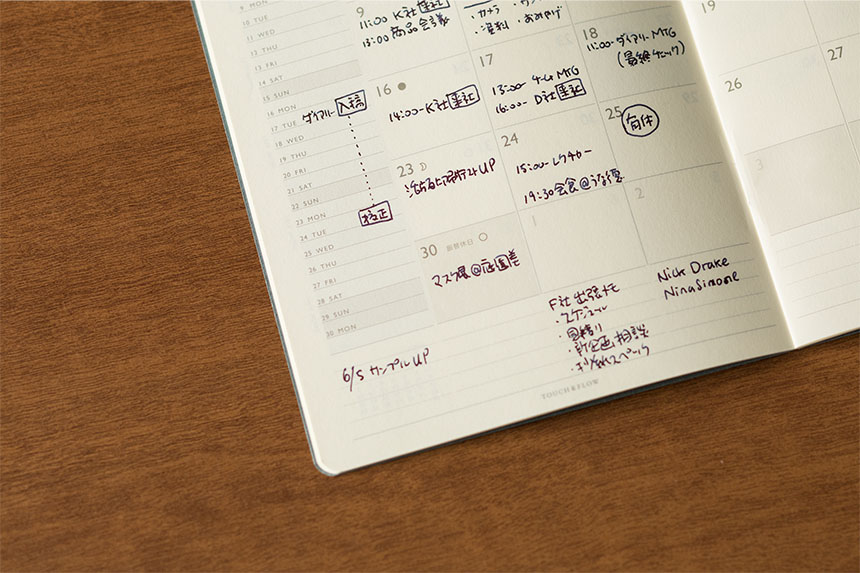 9 MON
10 TUE
11 WED
12 THU
13 FRI
14 SAT
15 SUN
16 MON
17 TUE
18 WED
19 THU
20 FRI
21 SAT
22 SUN
23 MON
24 TUE
25 WED
26 THU
27 FRI
28 SAT
29 SUN
30 MON
ダイアリー 入稿
校正
9
11:00 K社 来社
13:00 商品会議
・カメラ
・資料 ・おみやげ
18
11:00-ダイアリーMTG
(最終チェック)
19
16
14:00-K社 来社
17
13:00-チームMTG
16:00- D社 来社
25
有休
26
27
23
24
15:00-レクチャー
19:30会食@うな優
30 振替休日
マスク展@庭園美
1
2
3
6/5 サンプルUP
F社出張メモ
・スケジュール
・見積り
・新企画相談
・利紙スペック
Nick Drake
Nina Simone
TOUCH & FLOW